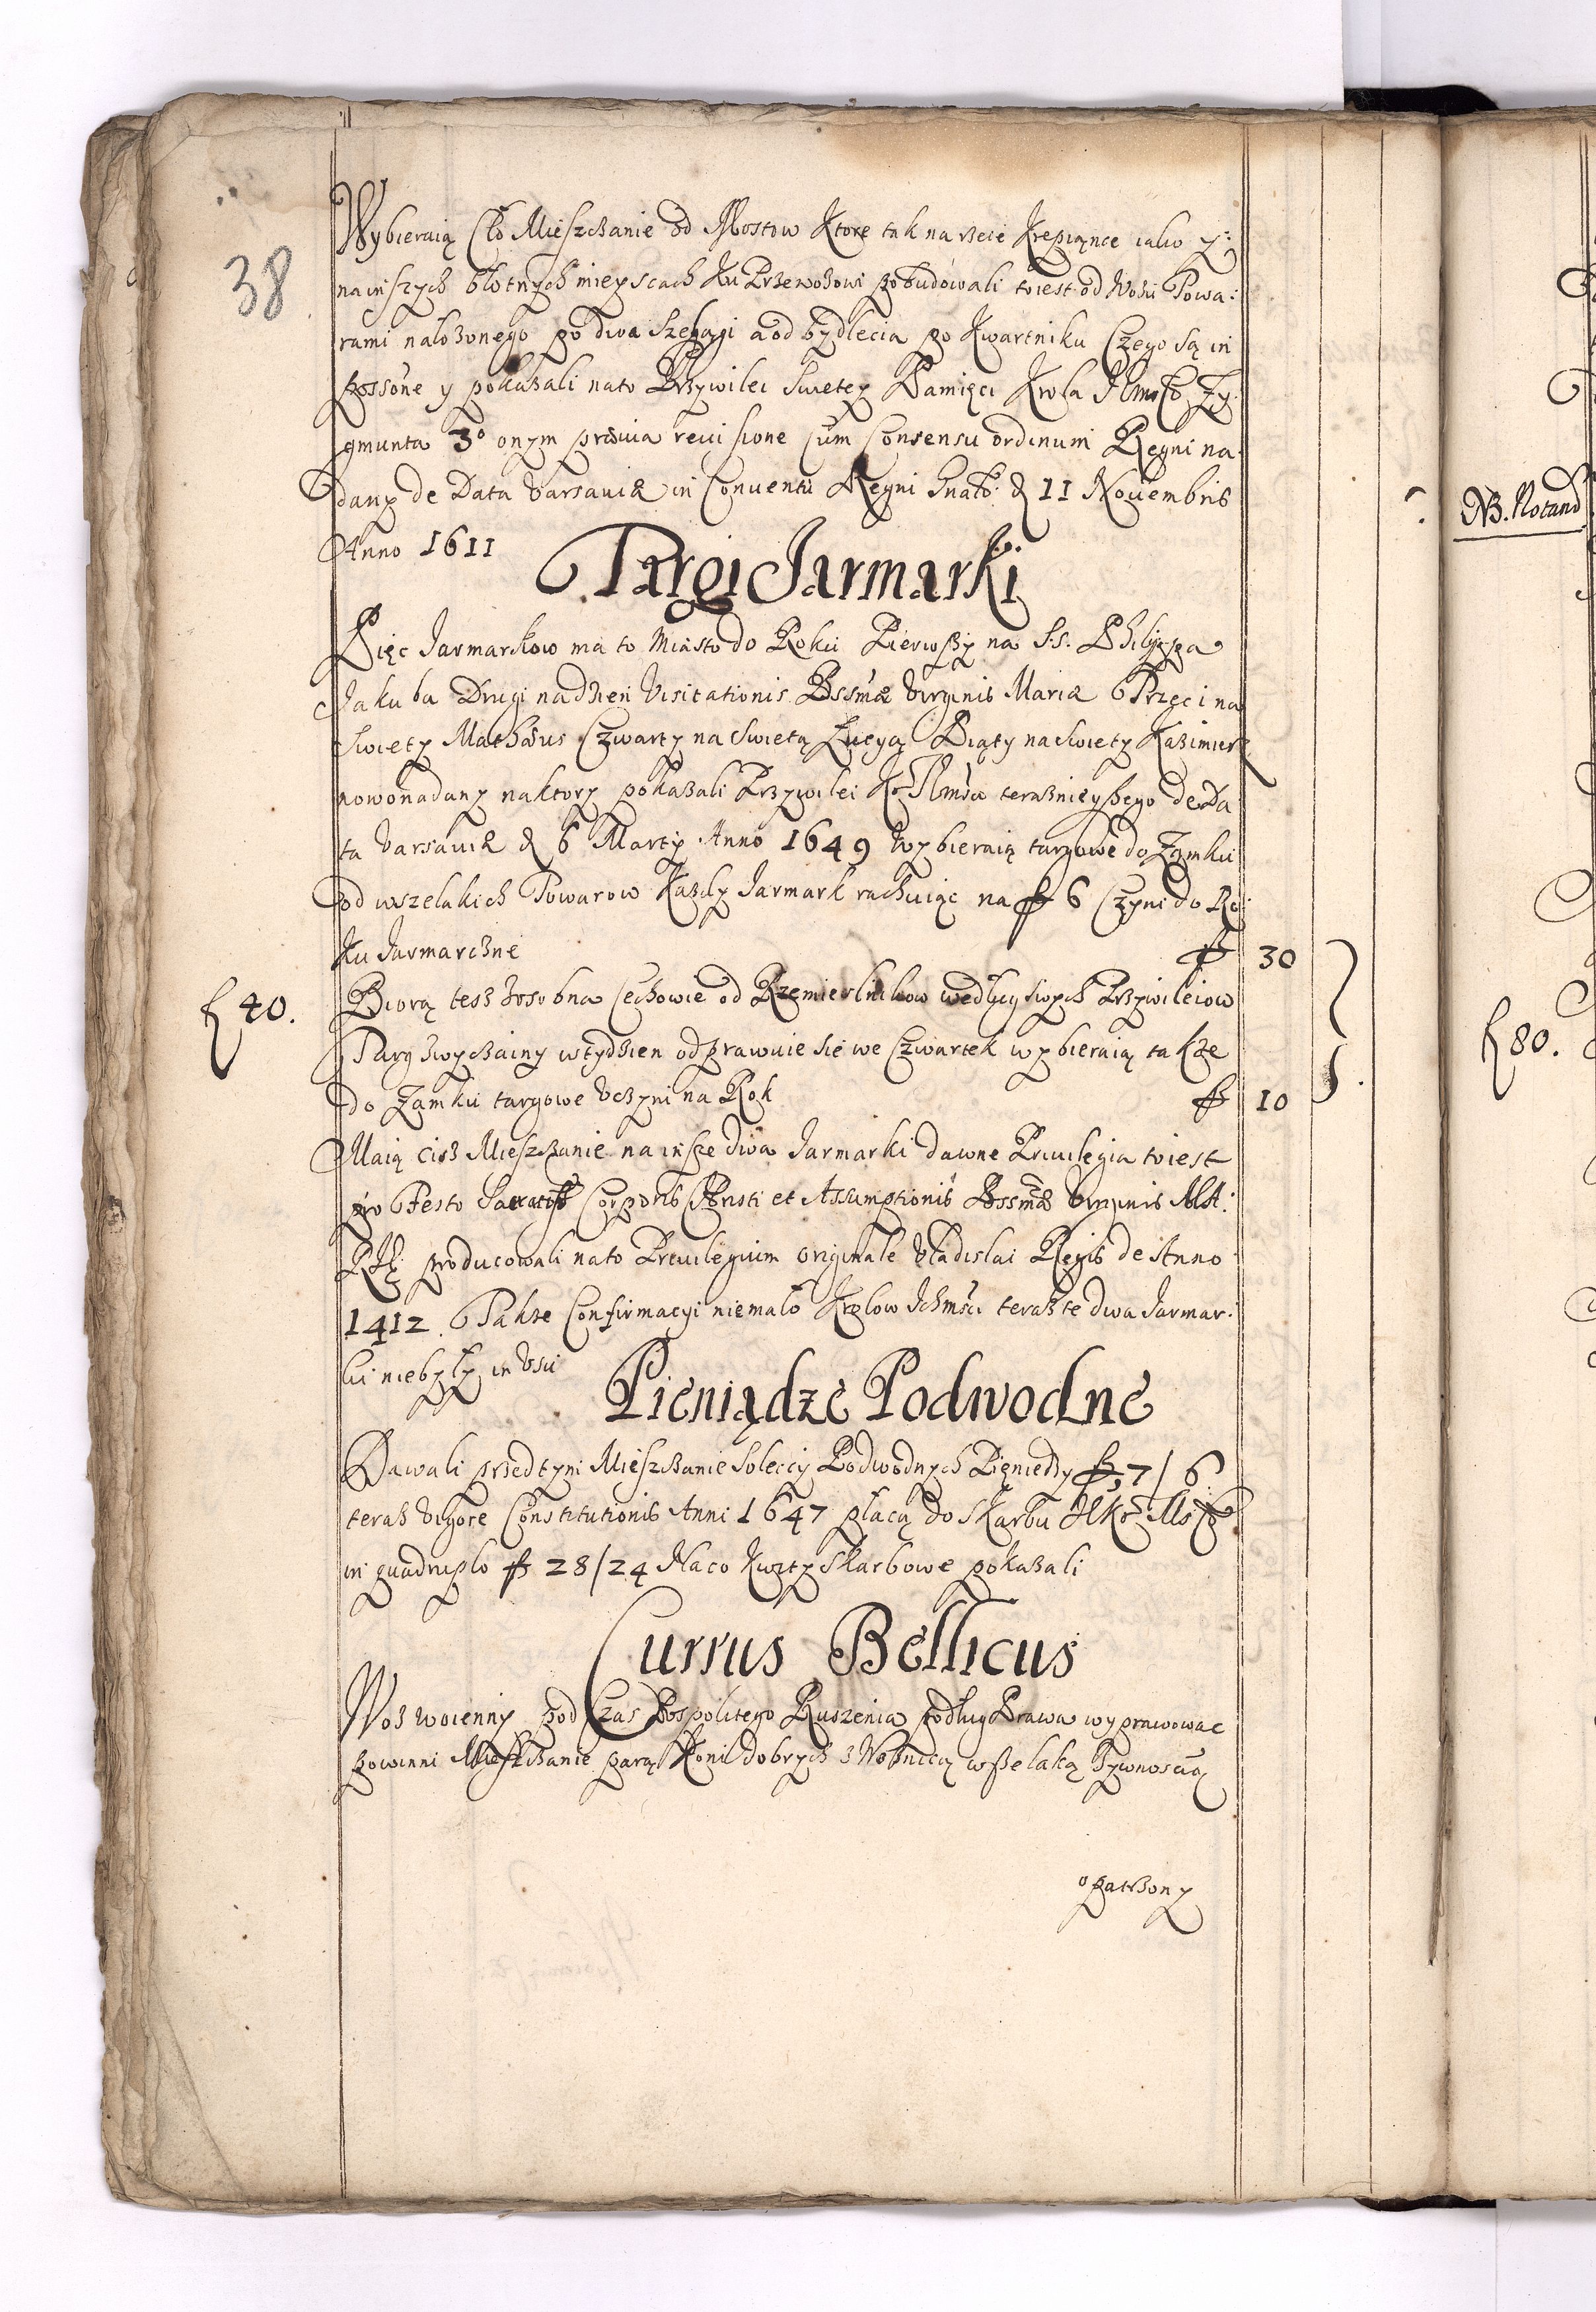 38
Wybieraią Cło Mieszczanie od Mostow Ktore tak na rzece Krępiąnce iako y
na inszych błotnych mieyscach Ku Przewozowi pobudowali to iest od Wozu Towa:
rami nałożonego po dwa szelągi a od bydlęcia po Kwartniku Czego są in
possone y pokazali na to Przywilei Swietey Pamięci Krola JEmsći Zy
gmunta 3º onym prævia reuisione cum Consensu ordinum Regni na
dany de Data Varsauiæ in Conuentu Regni Gnāli d 11 Nouembris
Anno 1611
Targi Jarmarki
Pięc Jarmarkow ma to Miasto do Roku Pierwszy na S.S. Philippa
Jakuba Drugi na dzien Visitationis Bssmæ Virginis Mariæ Trzeci na
Swiety Mathæus Czwarty na Swietą Lucyą Piąty na Swiety Kazimierz
nowo nadany na ktory pokazali Przywilei Kº JEmśći teraznieyszego de Da
ta Varsauiæ d 6 Marty Anno 1649 Wybieraią targowe do Zamku
od wszelakich Towarow Kazdy Jarmark rachuiąc na f 6 Czyni do Ro:
ku Jarmarczne f 30
f 40.
Biorą tesz zosobna Cechowie od Rzemieslnikow według swych Przywileiow
Targ zwyczainy w tydzien odprawuie się we Czwartek wybieraią takze
do Zamku targowe Vczyni na Rok f 10
Maią cisz Mieszczanie na insze dwa Jarmarki dawne Priuilegia to iest
pro Festo Corporis Christi et Assumptionis Bssmæ Virginis MA:
RIÆ producowali na to Priuilegium originale Vladislai Regis de Anno
1412. Takze Confirmacyi niemało Krolow Ichmśći teraz te dwa Jarmar:
ki nie były in Vsu
Pieniądze Podwodne
Dawali przed tym Mieszczanie Soleccy Podwodnych Pieniędzy f 7/6
teraz Vigore Constitutionis Anni 1647 płacą do Skarbu
in quadruplo f 28/24 Na co Kwity Skarbowe pokazali
Currus Bellicus
Woz woienny pod Czas Pospolitego Ruszenia podług Prawa wyprawowac
powinni Mieszczanie parą Koni dobrych z Woznicą wszelaką Zywnoscią
opatrzony
NB. Notand
f 80.